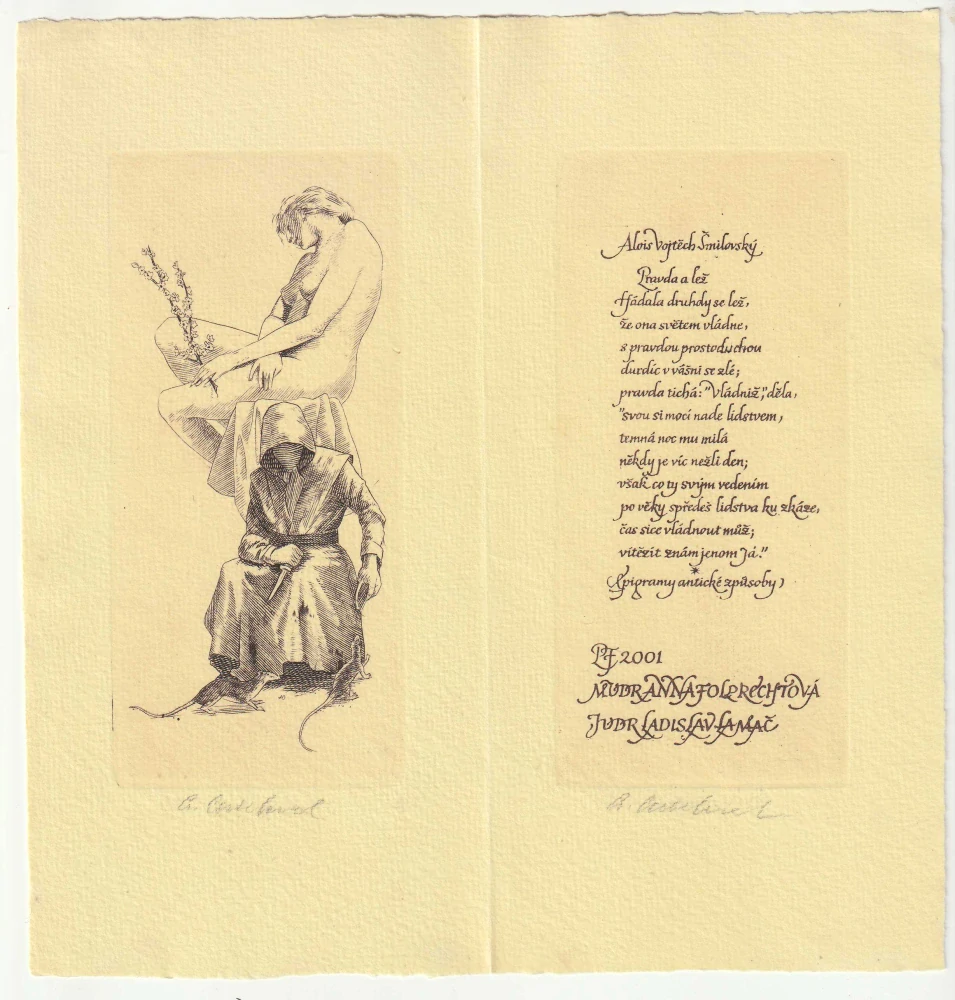 Alois Vojtěch Šmilovský
Pravda a lež
Hádala druhdy se lež,
že ona světem vládne,
s pravdou prostoduchou
durdíc v vášni se zlé;
pravda tichá: "Vládniž", děla,
"svou si mocí nade lidstvem,
temná noc mu milá
někdy je víc nežli den;
však co ty svým vedením
po věky spředeš lidstva ku zkáze,
čas sice vládnout můž;
vítězit znám jenom Já."
*
(Epigramy antické způsoby)
PF 2001
MUDR ANNA FOLPRECHTOVÁ
JUDR LADISLAV LAMAČ